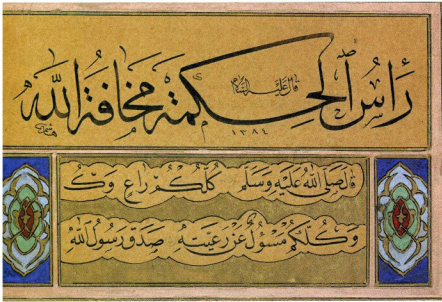 قال عليه السلام
رأس الحكمة مخافة الله
١٣٨٤
قال صلى الله عليه وسلم كلكم راع وك
وكلكم مسؤول عن رعيته صدق رسول الله